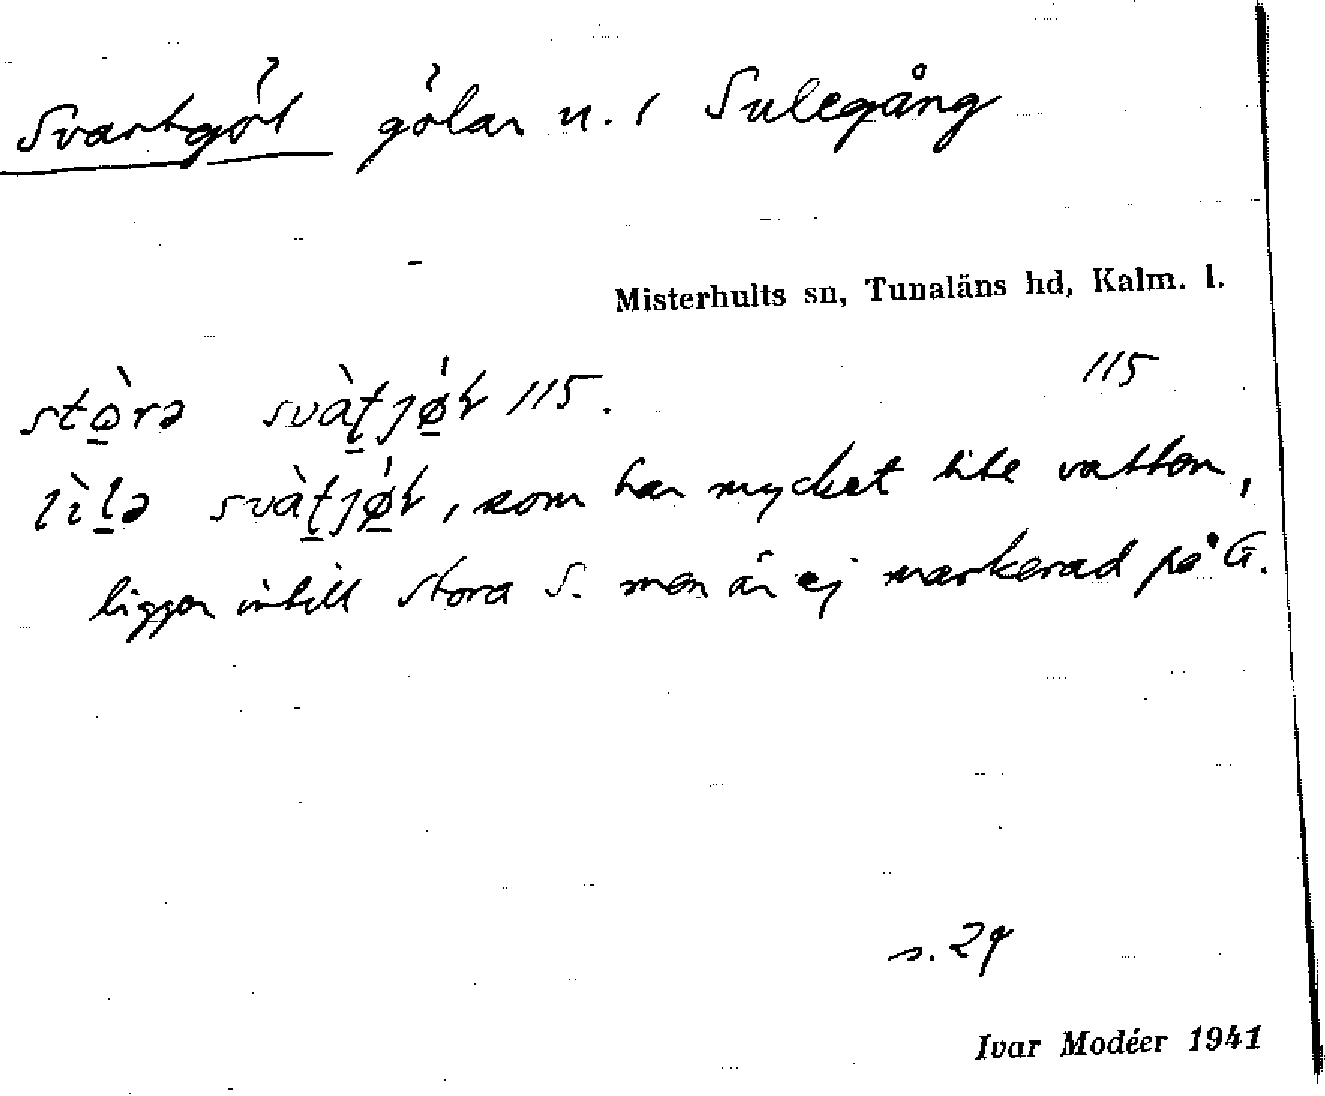 Svartgöl gölar n. i Sulegång
Misterhults sn, Tunaläns hd, Kalm. l.
115
115.
, som har mycket lite vatten,
ligger intill stora S. men är ej markerad på G.
s. 29
Ivar Modéer 1941